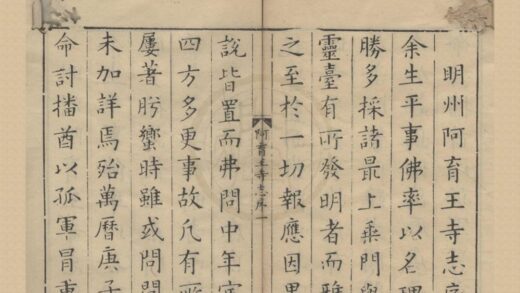 明州阿育王寺志序
余生平事佛率以名理
勝多採諸最上乘門與
靈臺有所發明者而雅
之至於一切報應因
阿育王寺志序 一
說皆置而弗問中年
四方多更事故凡有所
屢著肹蠁時雖或問
未加詳焉殆萬曆庚子
命討播酋以孤軍冒